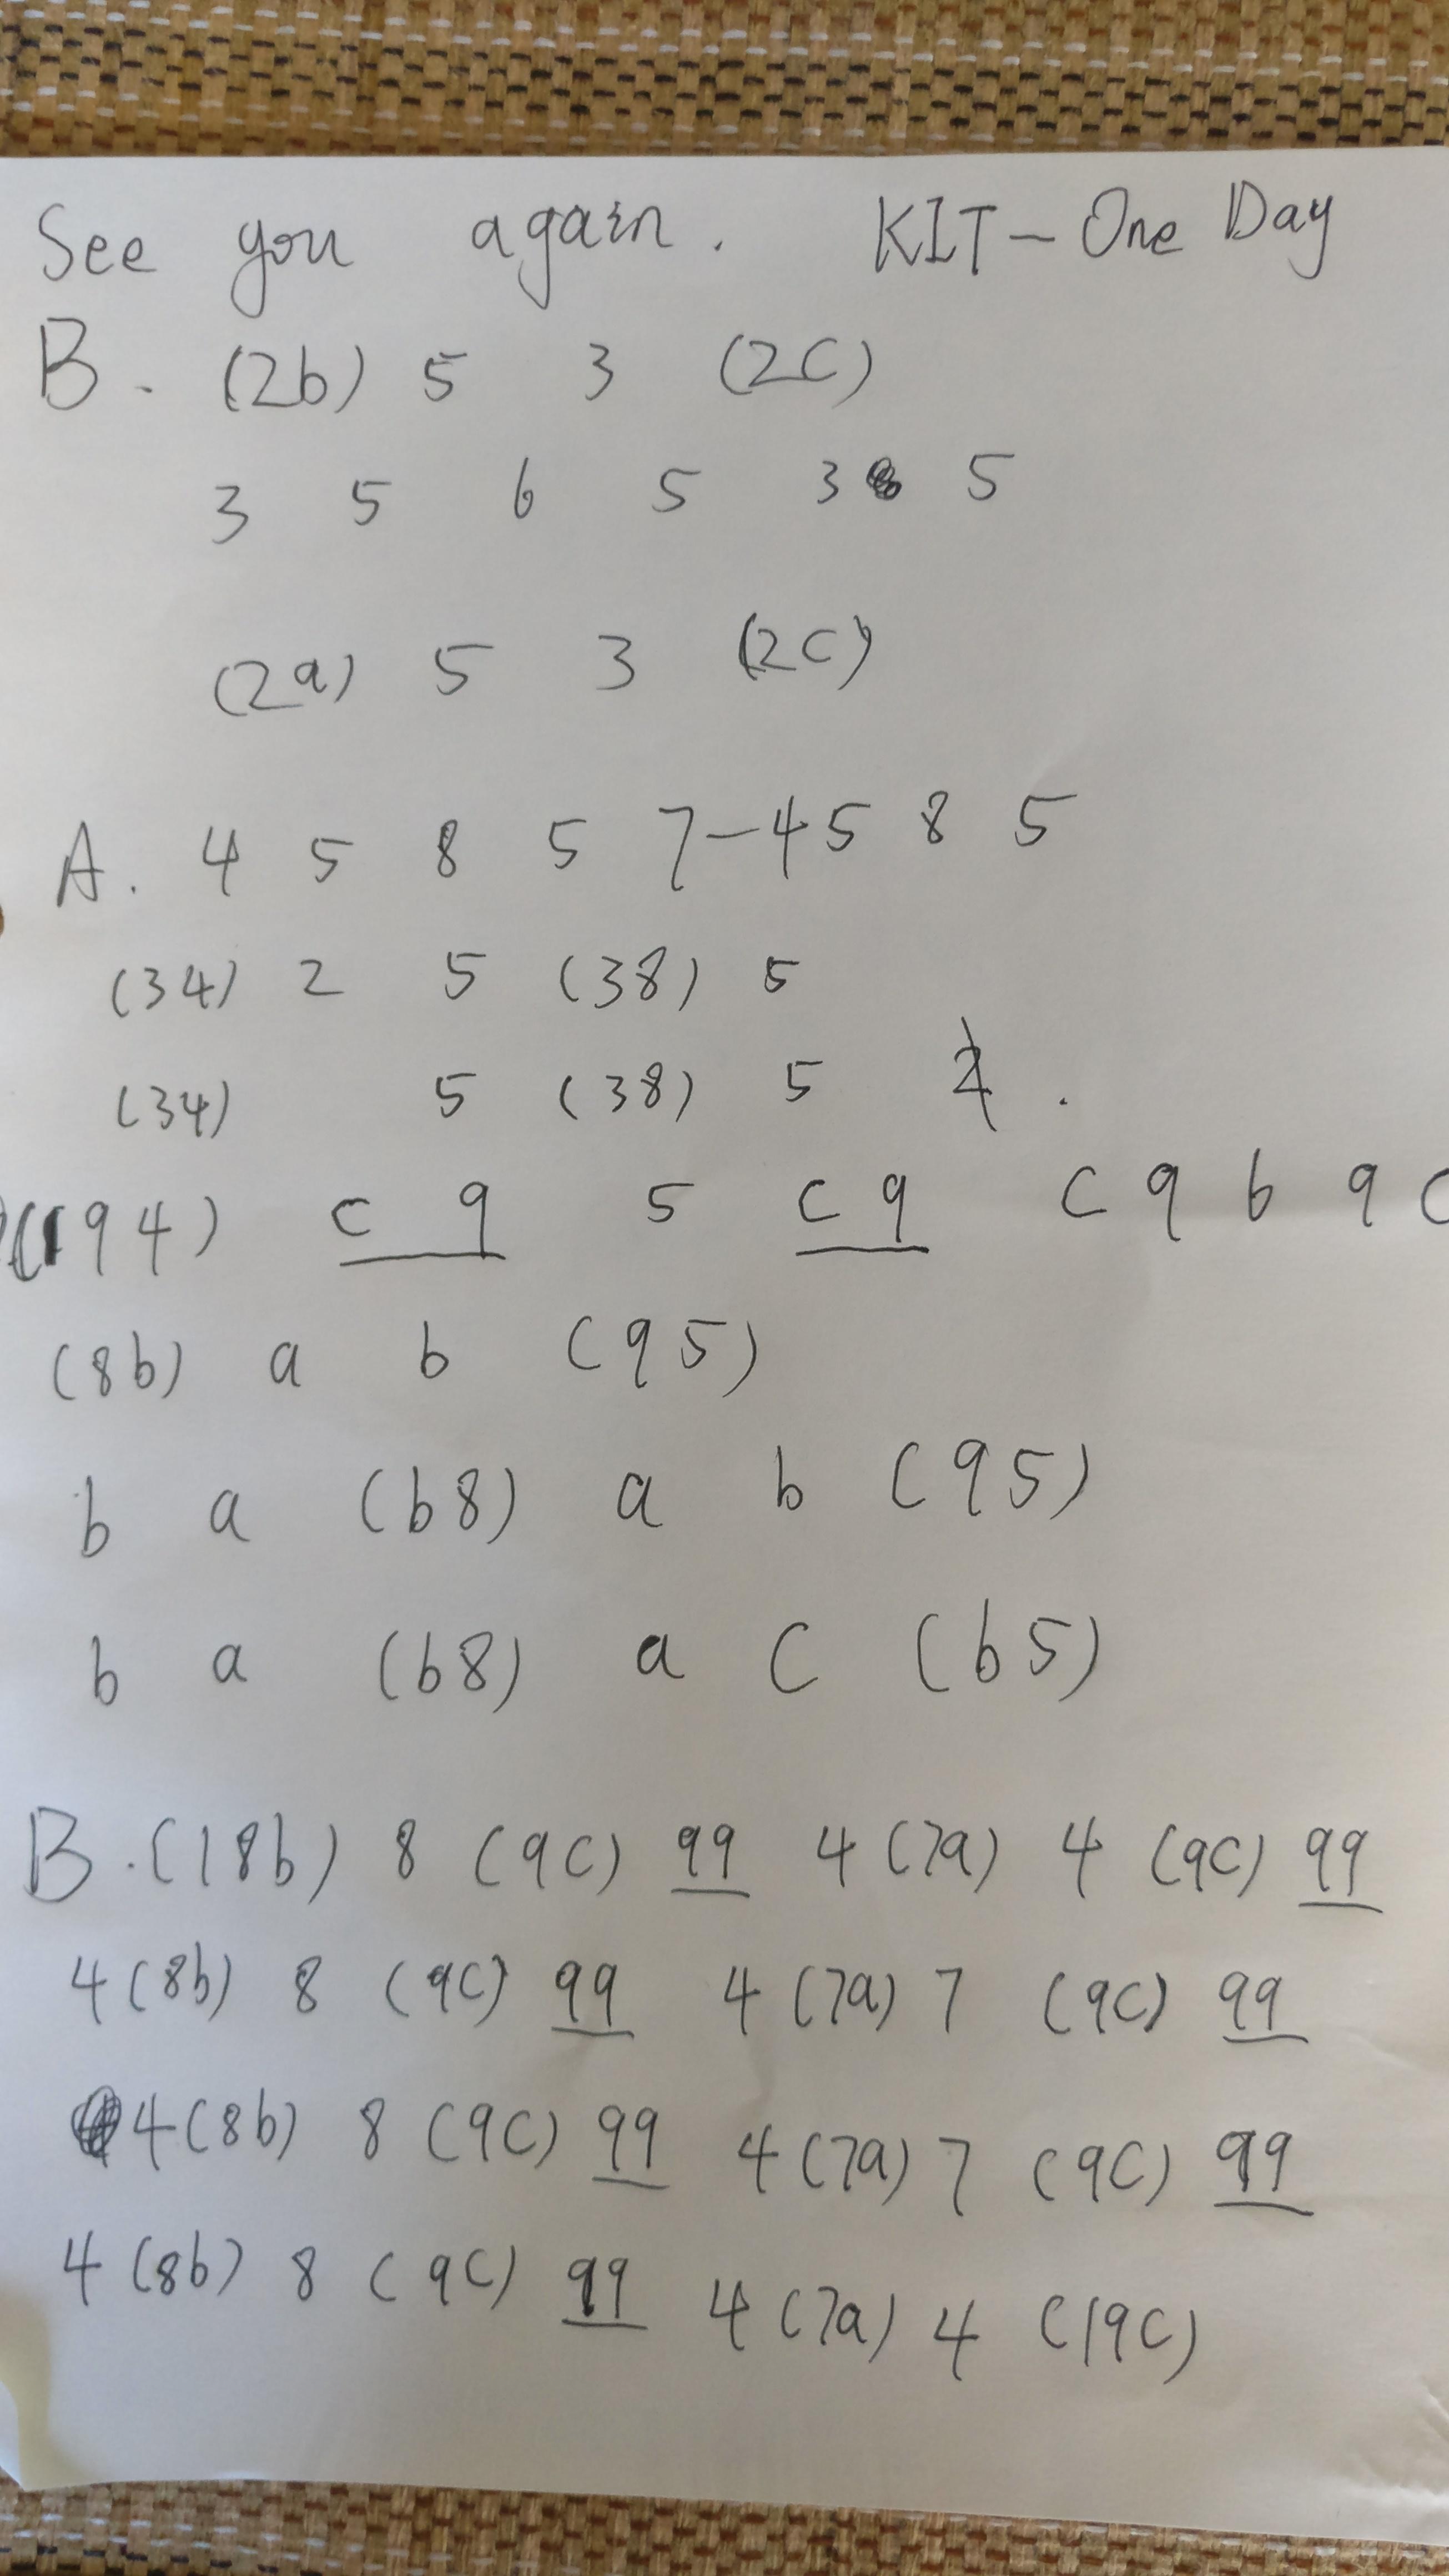 See you again. KIT - One Day
B. (2b) 5 3 (2C)
3 5 6 5 3 5
(2a) 5 3 (2C)
A. 4 5 8 5 7-45 8 5
(34) 2 5 (38) 5
(34) 5 (38) 5
(194) c 9 5 c 9 c 9 b 9 c
(8b) a b (95)
b a (b8) a b (95)
b a (b8) a c (b5)
B. (18b) 8 (9C) 99 4 (7a) 4 (9C) 99
4 (8b) 8 (9C) 99 4 (7a) 7 (9C) 99
4 (8b) 8 (9C) 99 4 (7a) 7 (9C) 99
4 (8b) 8 (9C) 99 4 (7a) 4 (19C)